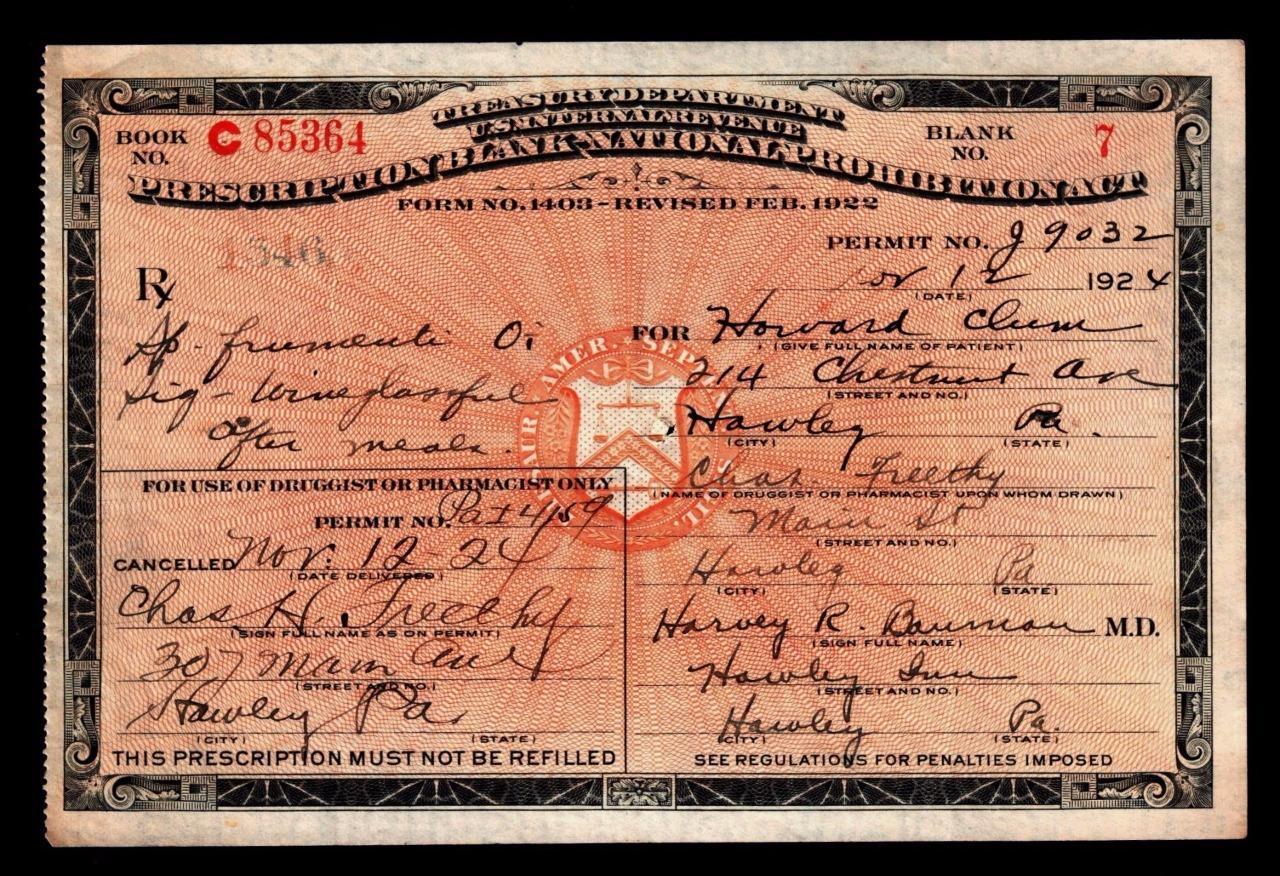 TREASURY DEPARTMENT
U.S. INTERNAL REVENUE
PRESCRIPTION BLANK-NATIONAL PROHIBITION ACT
FORM NO. 1403-REVISED FEB. 1922
BOOK NO. C 85364
BLANK NO. 7
PERMIT NO. J 9032
Nov 12 1924
(DATE)
Rx
Sp. frumenti Oi
Sig- Wineglassful
after meals.
FOR Howard Clum
(GIVE FULL NAME OF PATIENT)
214 Chestnut Ave
(STREET AND NO.)
Hawley Pa.
(CITY) (STATE)
Chas. Freethy
(NAME OF DRUGGIST OR PHARMACIST UPON WHOM DRAWN)
Main St
(STREET AND NO.)
Hawley Pa
(CITY) (STATE)
Harvey R. Bauman M.D.
(SIGN FULL NAME)
Hawley Inn
(STREET AND NO.)
Hawley Pa.
(CITY) (STATE)
SEE REGULATIONS FOR PENALTIES IMPOSED
FOR USE OF DRUGGIST OR PHARMACIST ONLY
PERMIT NO. Pa I 4159
CANCELLED Nov. 12-24
(DATE DELIVERED)
Chas. H. Freethy
(SIGN FULL NAME AS ON PERMIT)
307 Main Ave
(STREET AND NO.)
Hawley Pa.
(CITY) (STATE)
THIS PRESCRIPTION MUST NOT BE REFILLED